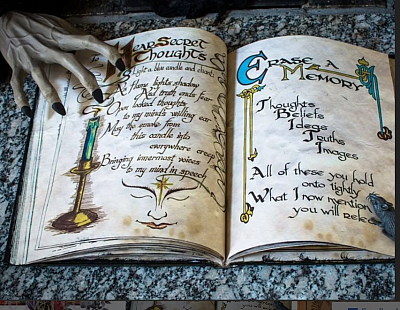 To
Hear Secret
Thoughts
Light a blue candle and chant:
As flame lights shadow
And truth ends fear
Open locked thoughts
to my mind's willing ear
May the smoke from
this candle into
everywhere creep
Bringing innermost voices up
to my mind in speech
Erase a
Memory
Thoughts
Beliefs
Ideas
Truths
Images
All of these you hold
onto tightly
What I now mention
you will